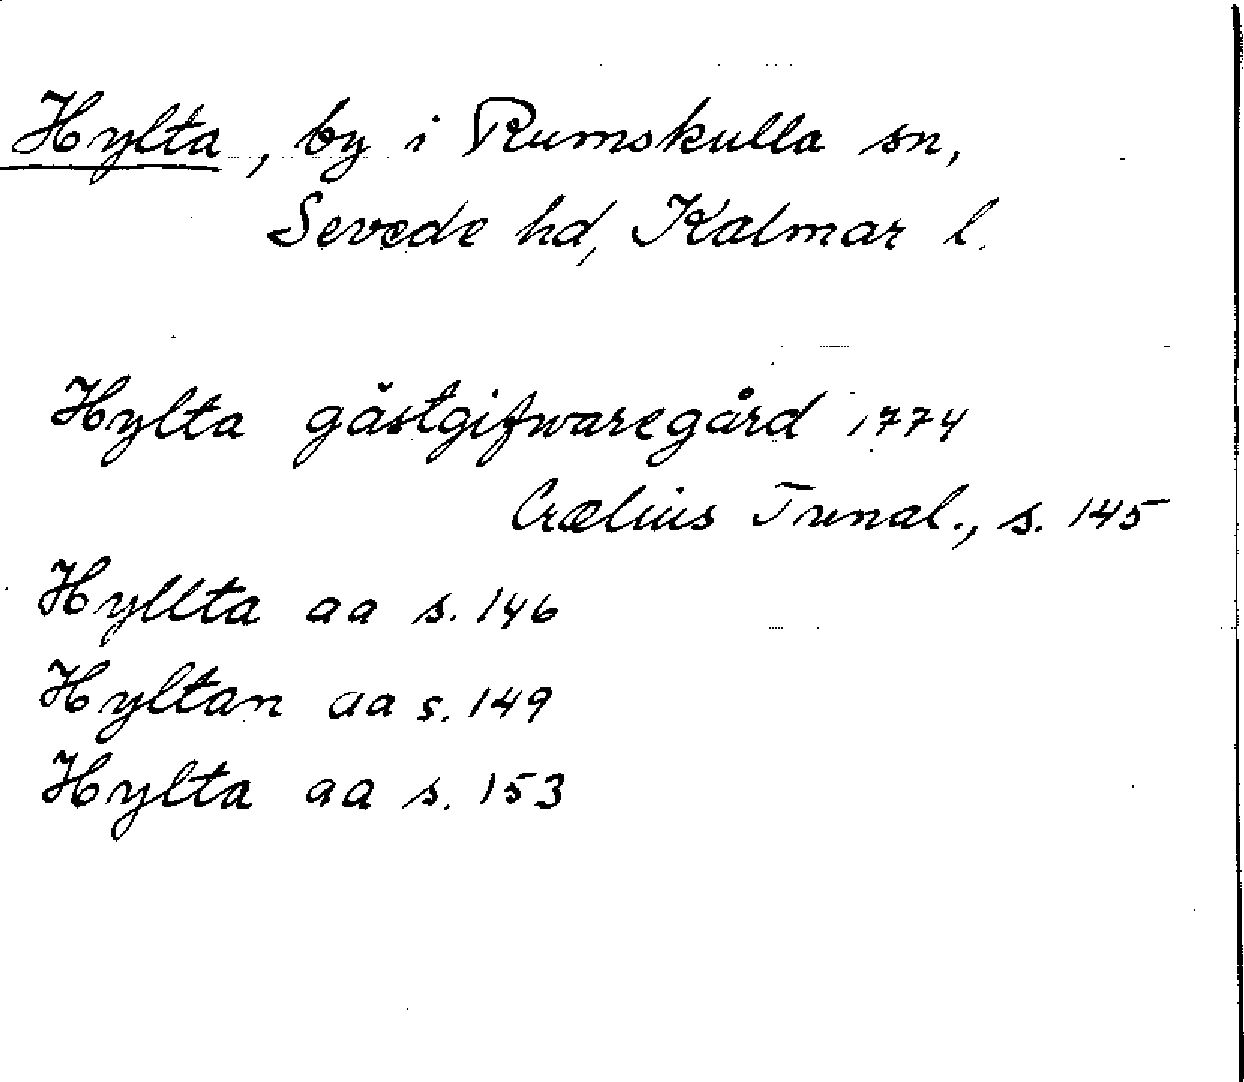 Hylta, by i Rumskulla sn,
Sevede hd, Kalmar l.
Hylta gästgifwaregård 1774
Crælius Tunal., s. 145
Hyllta aa s. 146
Hyltan aa s. 149
Hylta aa s. 153